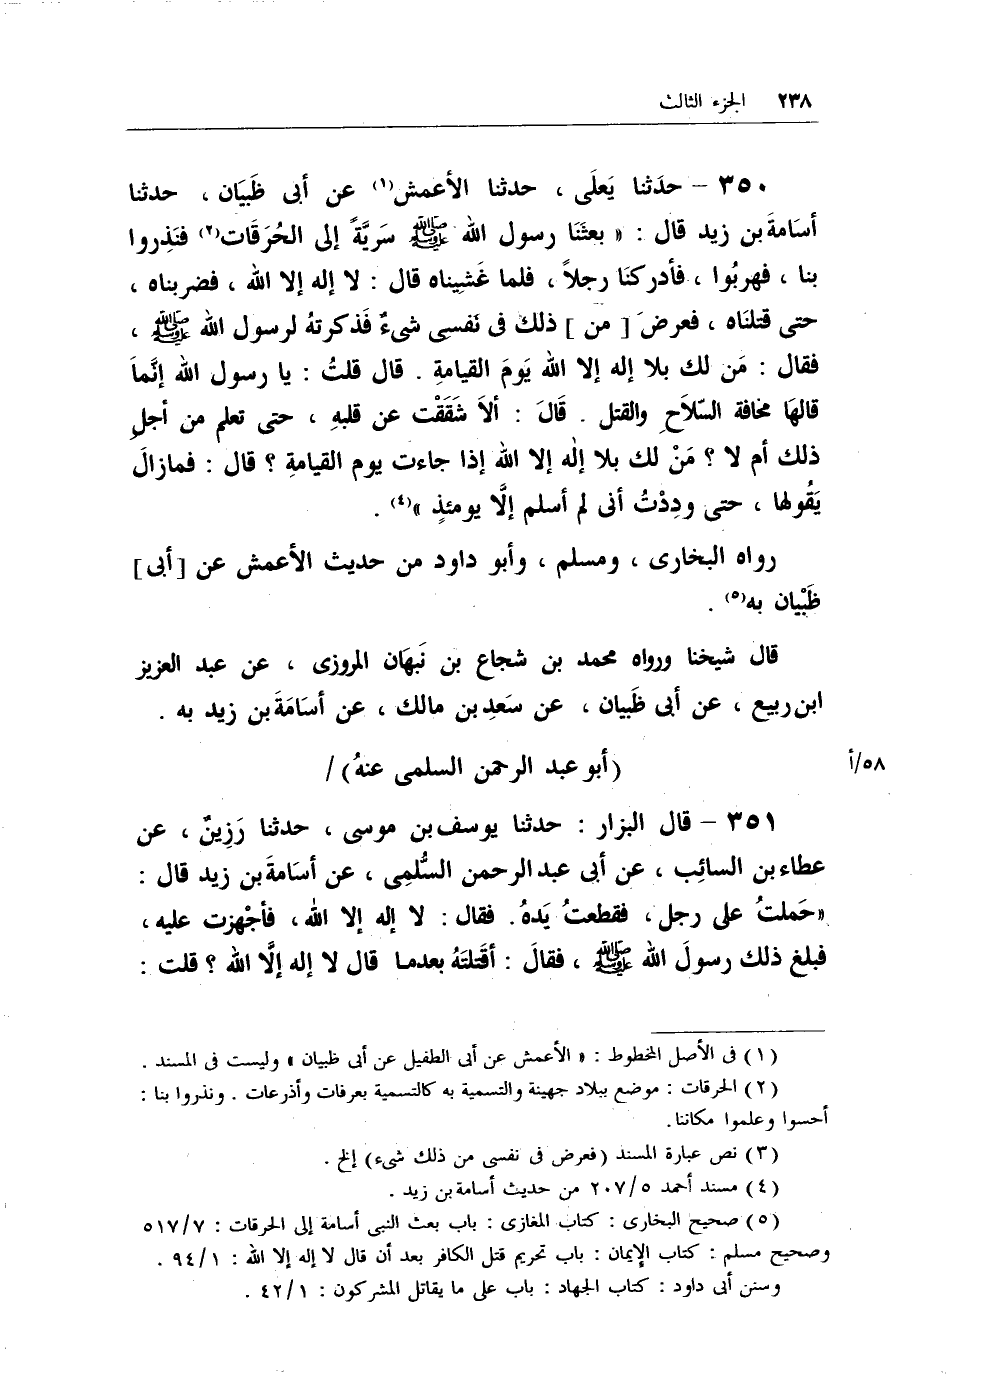 ٢٣٨ الجزء الثالث
٣٥٠ – حدَثنا يَعلَى ، حدثنا الأعمش(١) عن أبى ظَبيَان ، حدثنا
أسَامةَ بن زيد قال : « بعثَنَا رسول الله ﷺ سَريَّةً إلى الحُرَقَات(٢) فنَذِروا
بنا ، فهربُوا ، فأدركنَا رجلاً ، فلما غَشيِناه قال : لا إله إلا الله ، فضربناه ،
حتى قتلنَاه ، فعرضَ [ من ] ذلك فى نَفسِى شىءٌ فَذكرتهُ لرسول الله ﷺ ،
فقال : مَن لك بلا إله إلا الله يَومَ القيامةِ . قال قلتُ : يا رسول الله إنَّماَ
قالهَا مخافة السّلاَحِ والقتل . قَالَ : ألاَ شَقَقْت عن قلبهِ ، حتى تعلم من أجلِ
ذلك أم لا ؟ مَنْ لك بلا إله إلا الله إذا جاءت يوم القيامةِ ؟ قال : فمازالَ
يَقُولها ، حتى ودِدْتُ أنى لم أسلم إلَّا يومئذٍ »(٤) .
رواه البخارى ، ومسلم ، وأبو داود من حديث الأعمش عن [ أبى ]
ظَبْيان به(٥) .
قال شيخنا ورواه محمد بن شجاع بن نَبهَان المروزى ، عن عبد العزيز
ابن ربيع ، عن أبى ظَبيان ، عن سَعدِ بن مالك ، عن أسَامَةَ بن زيد به .
(أبو عبد الرحمن السلمى عنهُ) /
٥٨/أ
٣٥١ – قال البزار : حدثنا يوسف بن موسى ، حدثنا رَزِينٌ ، عن
عطاء بن السائِب ، عن أبى عبد الرحمن السُّلمِى ، عن أسَامةَ بن زيد قال :
«حَملتُ على رجل ، فقطعتُ يَدهُ. فقال : لا إله إلا الله ، فأجْهزت عليه ،
فبلغ ذلك رسولَ الله ﷺ ، فقالَ : أقَتلتَهُ بعدمـا قال لا إله إلَّا الله ؟ قلت :
(١) فى الأصل المخطوط : « الأعمش عن أبى الطفيل عن أبى ظبيان » وليست فى المسند .
(٢) الحرقات : موضع ببلاد جهينة والتسمية به كالتسمية بعرفات وأذرعات . ونذروا بنا :
أحسوا وعلموا مكاننا.
(٣) نص عبارة المسند (فعرض فى نفسى من ذلك شىء) إلخ .
(٤) مسند أحمد ٢٠٧/٥ من حديث أسامة بن زيد .
(٥) صحيح البخارى : كتاب المغازى : باب بعث النبى أسامة إلى الحرقات : ٥١٧/٧
وصحيح مسلم : كتاب الإيمان : باب تحريم قتل الكافر بعد أن قال لا إله إلا الله : ٩٤/١ .
وسنن أبى داود : كتاب الجهاد : باب على ما يقاتل المشركون : ٤٢/١ .